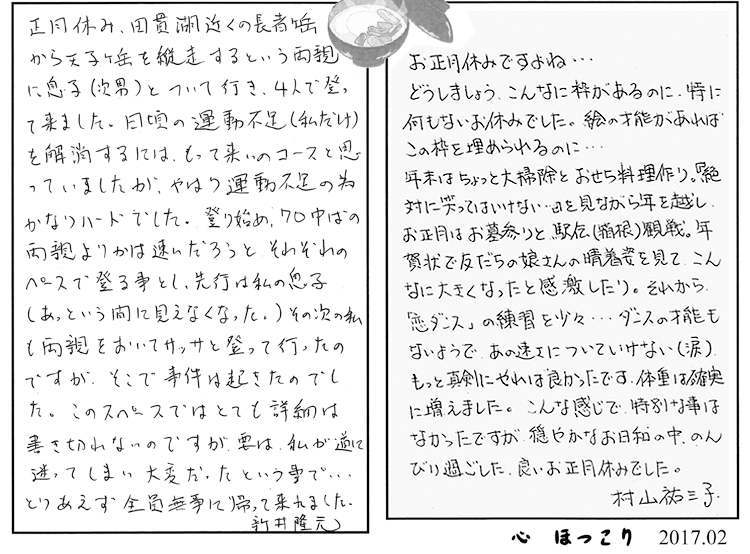 正月休み、田貫湖近くの長者岳
から天子ヶ岳を縦走するという両親
に息子(次男)とついて行き、4人で登っ
て来ました。日頃の運動不足(私だけ)
を解消するには、もって来いのコースと思
っていましたが、やはり運動不足の為
かなりハードでした。登り始め、70中ばの
両親よりかは速いだろうと それぞれの
ペースで登る事とし、先行は私の息子
(あっという間に見えなくなった。)その次の私
も両親をおいてサッサと登って行ったの
ですが、そこで事件は起きたのでし
た。このスペースではとても詳細は
書き切れないのですが、要は、私が道に
迷ってしまい大変だったという事で…
とりあえず全員無事に帰って来れました。
新井隆元
お正月休みですよね…
どうしましょう、こんなに枠があるのに、特に
何もないお休みでした。絵の才能があれば
この枠を埋められるのに…
年末はちょっと大掃除とおせち料理作り。『絶
対に笑ってはいけない…』を見ながら年を越し、
お正月はお墓参りと、駅伝(箱根)観戦。年
賀状で友だちの娘さんの晴着姿を見て、こん
なに大きくなったと感激したり。それから、
「恋ダンス」の練習を少々…ダンスの才能も
ないようで、あの速さについていけない(涙)
もっと真剣にやれば良かったです、体重は確実
に増えました。こんな感じで、特別な事は
なかったですが、穏やかなお日和の中、のん
びり過ごした、良いお正月休みでした。
村山祐三子
心 ほっこり 2017.02